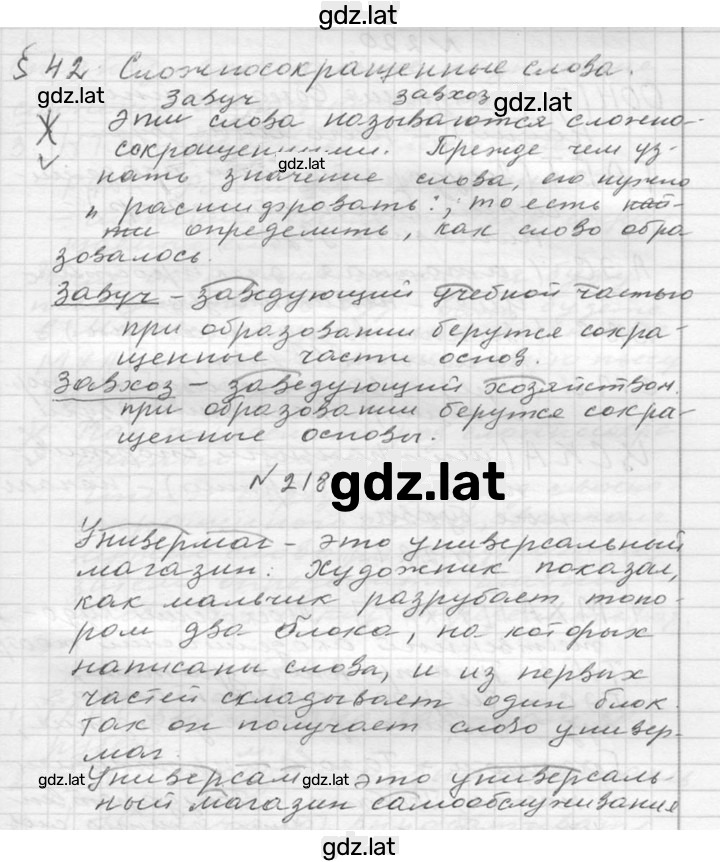 gdz.lat
§ 42 Сложносокращенные слова.
Завуч завхоз
gdz.lat gdz.lat
Эти слова называются сложно-
сокращенными. Прежде чем уз-
gdz.lat
нать значение слова, его нужно
„расшифровать", то есть най-
ти определить, как слово обра
зовалось.
Завуч – заведующий учебной частью
при образовании берутся сокра-
щенные части основ.
Завхоз – заведующий хозяйством.
при образовании берутся сокра-
щенные основы.
№ 218
gdz.lat
Универмаг – это универсальный
магазин. Художник показал,
как мальчик разрубает топо-
ром два блока, на которых
написаны слова, и из первых
частей складывает один блок.
Так он получает слово универ-
маг.
Универсам это универсаль-
gdz.lat gdz.lat gdz.lat
ный магазин самообслуживания
gdz.lat